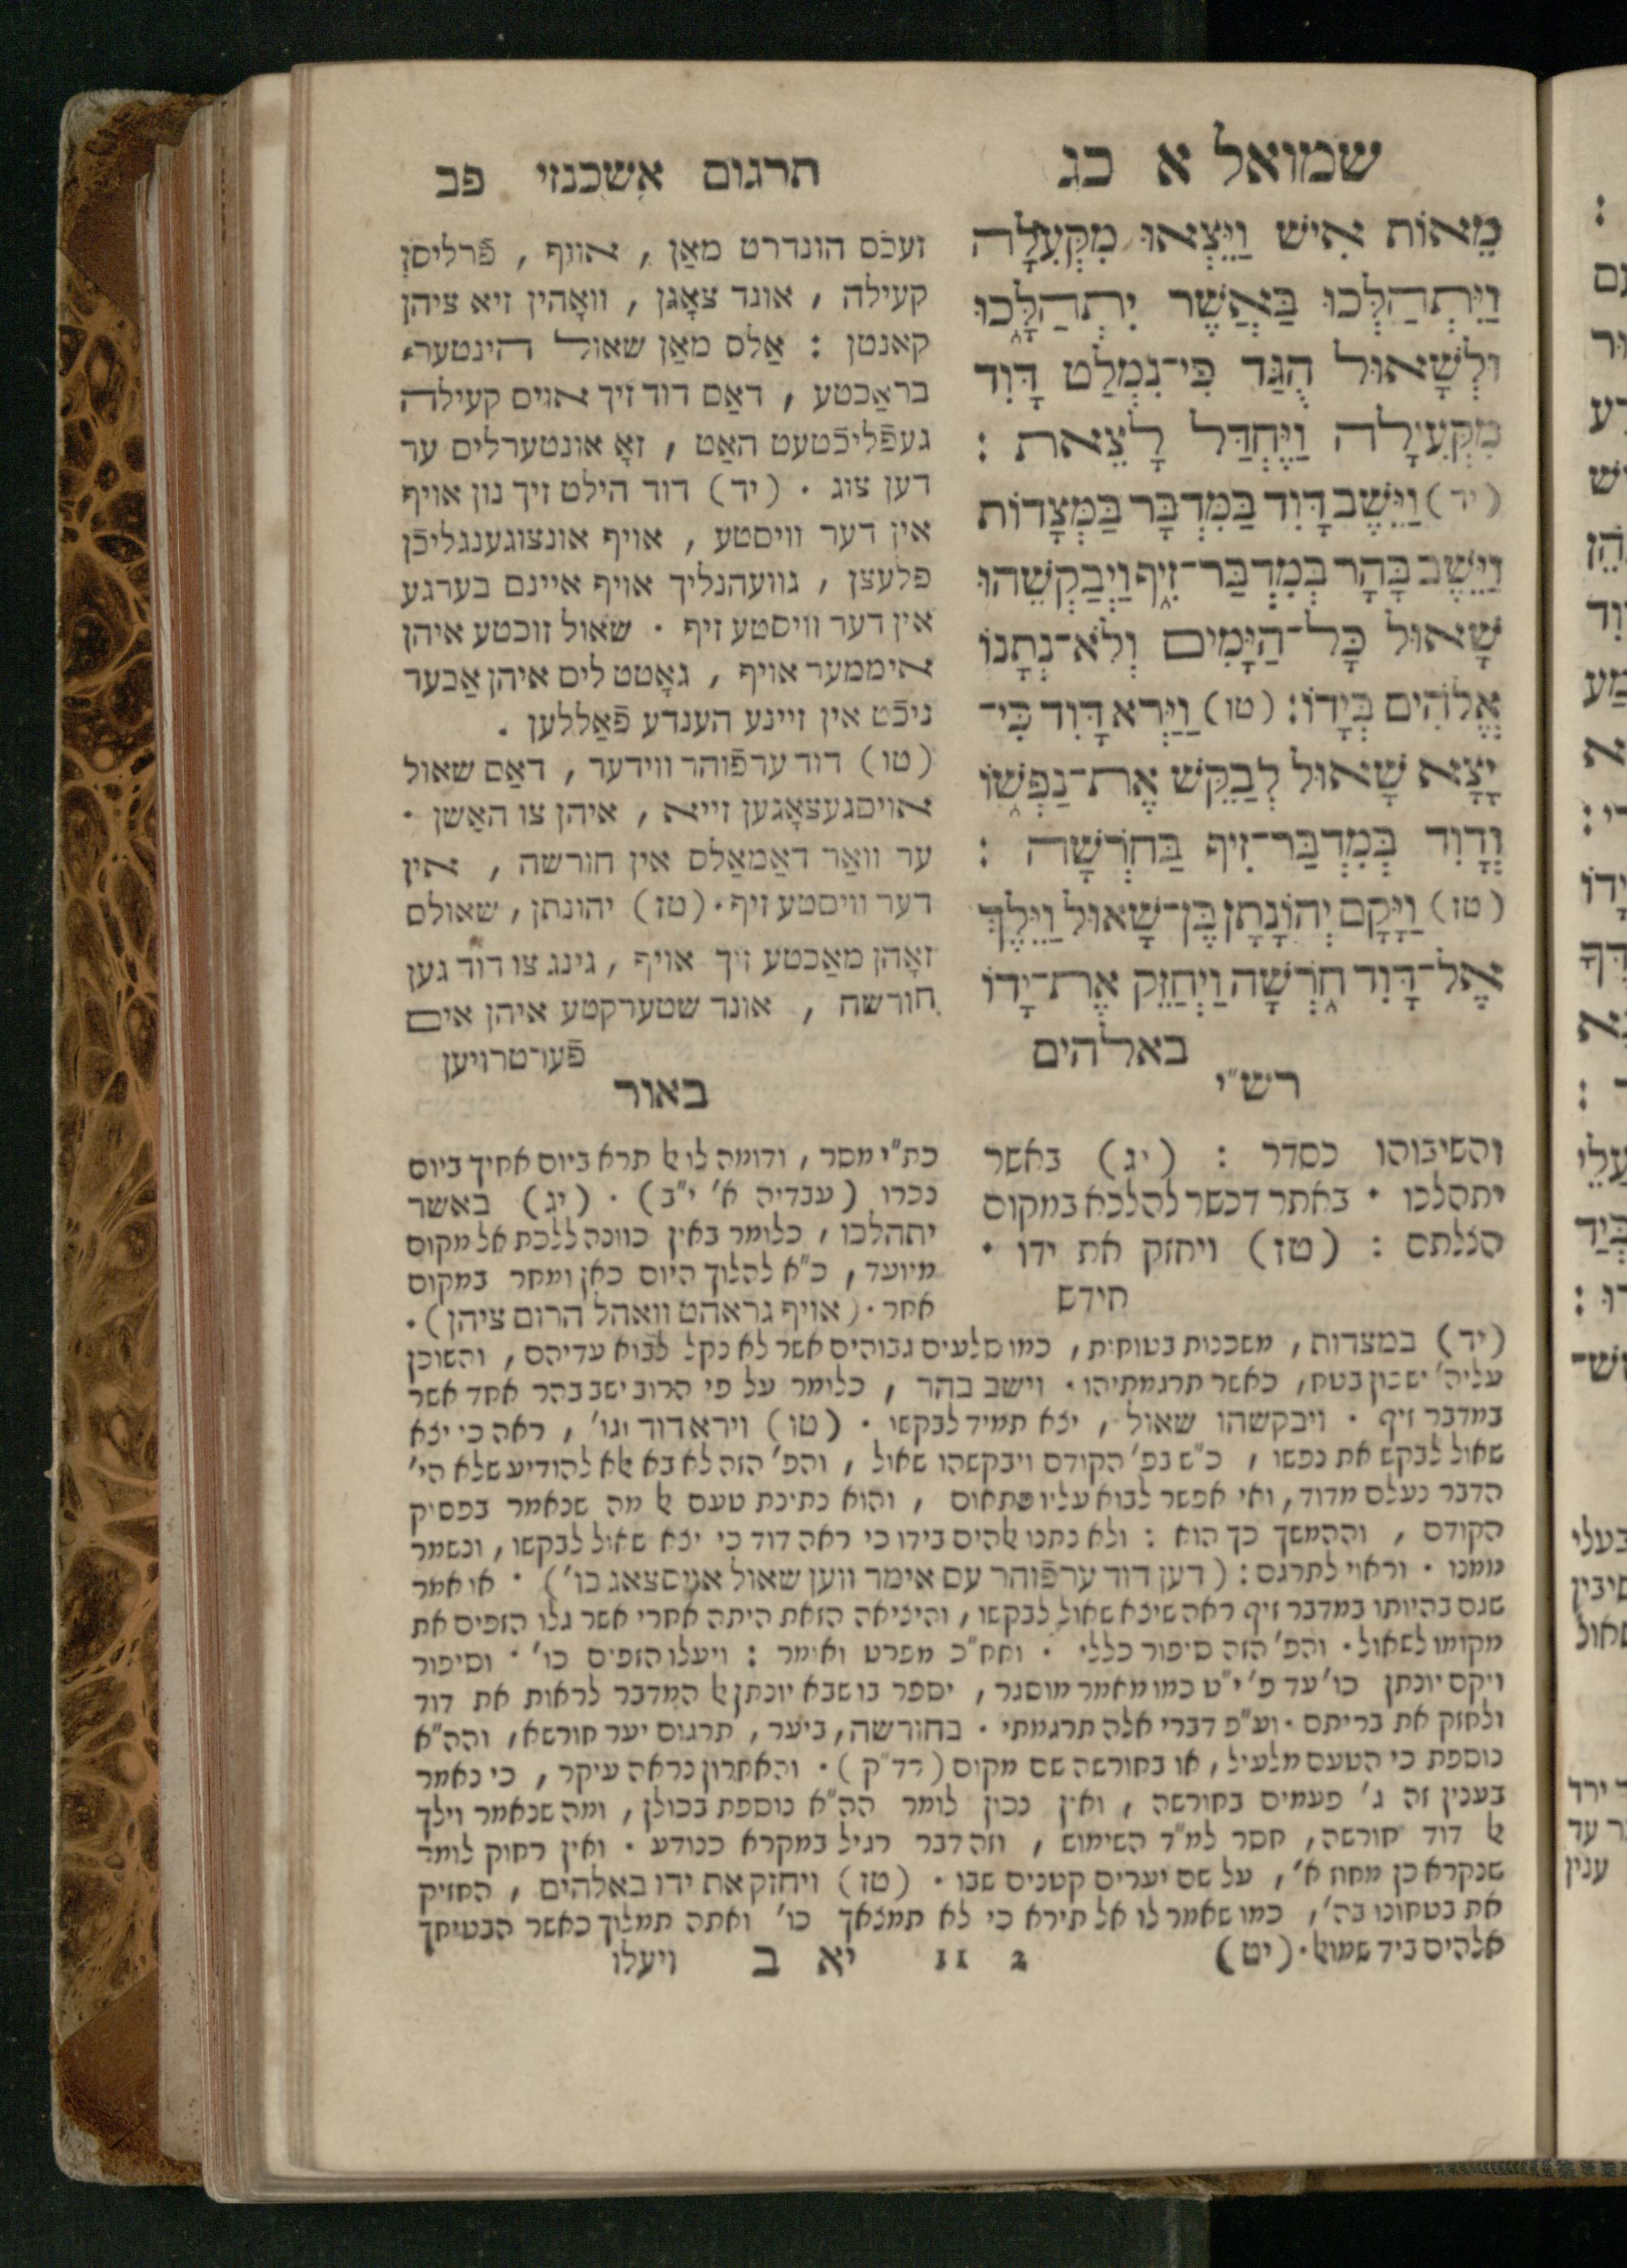 שמואל א כג
מֵאוֹת אִישׁ וַיֵּצְאוּ מִקְּעִלָה
וַיִּתְהַלְּכוּ בַּאֲשֶׁר יִתְהַלָּכוּ
וּלְשָׁאוּל הֻגַּד כִּי־נִמְלַט דָּוִד
מִקְּעִילָה וַיֶּחְדַּל לָצֵאת :
(יד) וַיֵּשֶׁב דָּוִד בַּמִּדְבָּר בַּמְּצָדוֹת
וַיֵּשֶׁב בָּהָר בְּמִדְבַּר־זִיף וַיְבַקְשֵׁהוּ
שָׁאוּל כָּל־הַיָּמִים וְלֹא־נְתָנוֹ
אֱלֹהִים בְּיָדוֹ: (טו) וַיַּרְא דָוִד כִּי־
יָצָא שָׁאוּל לְבַקֵּשׁ אֶת־נַפְשׁוֹ
וְדָוִד בְּמִדְבַּר־זִיף בַּחֹרְשָׁה :
(טז) וַיָּקָם יְהוֹנָתָן בֶּן־שָׁאוּל וַיֵּלֶךְ
אֶל־דָּוִד חֹרְשָׁה וַיְחַזֵּק אֶת־יָדוֹ
באלהים
תרגום אשכנזי פב
זעכֿס הונדרט מאַן , אויף , פֿרליסן
קעילה , אונד צאָגן , וואָהין זיא ציהן
קאנטן : אַלס מאַן שאול הינטער־
בראַכטע , דאַס דוד זיך אויס קעילה
געפֿליכֿטעט האַט , זאָ אונטערליס ער
דען צוג . (יד) דוד הילט זיך נון אויף
אין דער וויסטע , אויף אונצוגענגליכֿן
פלעצן , גוועהנליך אויף איינם בערגע
אין דער וויסטע זיף . שאול זוכטע איהן
איממער אויף , גאָטט ליס איהן אַבער
ניכֿט אין זיינע הענדע פֿאַללען .
(טו) דוד ערפֿוהר ווידער , דאַס שאול
אויסגעצאָגען זייא , איהן צו האַשן .
ער וואַר דאַמאַלס אין חורשה , אין
דער וויסטע זיף . (טז) יהונתן , שאולס
זאָהן מאַכטע זיך אויף , גינג צו דוד גען
חורשה , אונד שטערקטע איהן אים
פֿערטרויען
רש״י
והשיבוהו כסדר : (יג) באשר
יתהלכו . באתר דכשר להלכא במקום
הצלתם : (טז) ויחזק את ידו .
חידש
באור
כת״י מסר , ודומה לו אל תרא ביום אחיך ביום
נכרו (עבדיה א׳ י״ב) . (יג) באשר
יתהלכו , כלומר באין כוונה ללכת אל מקום
מיועד , כ״א להלוך היום כאן ומחר במקום
אחר . (אויף גראהט וואהל הרום ציהן) .
(יד) במצדות , משכנות בטוחות , כמו סלעים גבוהים אשר לא נקל לבוא עדיהם , והשוכן
עליה׳ ישכון בטח , כאשר תרגמתיהו . וישב בהר , כלומר על פי הרוב ישב בהר אחד אשר
במדבר זיף . ויבקשהו שאול , יצא תמיד לבקשו . (טו) וירא דוד וגו׳ , ראה כי יצא
שאול לבקש את נפשו , כ״ש בפ׳ הקודם ויבקשהו שאול , והפ׳ הזה לא בא אלא להודיע שלא הי׳
הדבר נעלם מדוד , ואי אפשר לבוא עליו פתאום , והוא נתינת טעם אל מה שנאמר בפסיק
הקודם , וההמשך כך הוא : ולא נתנו אלהים בידו כי ראה דוד כי יצא שאול לבקשו , ונשמר
ממנו . וראוי לתרגם : (דען דוד ערפֿוהר עס אימר ווען שאול אויסצאג כו׳) . או אמר
שגם בהיותו במדבר זיף ראה שיצא שאול לבקשו , והיציאה הזאת היתה אחרי אשר גלו הזפים את
מקומו לשאול . והפ׳ הזה סיפור כללי . ואח״כ מפרט ואומר : ויעלו הזפים כו׳ . וסיפור
ויקם יונתן כו׳ עד פ׳ י״ט כמו מאמר מוסגר , יספר בו שבא יונתן אל המדבר לראות את דוד
ולחזק את בריתם . וע״פ דברי אלה תרגמתי . בחורשה , ביער , תרגום יער חורשא , והה״א
נוספת כי הטעם מלעיל , או בחורשה שם מקום (רד״ק) . והאחרון נראה עיקר , כי נאמר
בענין זה ג׳ פעמים בחורשה , ואין נכון לומר הה״א נוספת בכולן , ומה שנאמר וילך
אל דוד חורשה , חסר למ״ד השימוש , וזה דבר רגיל במקרא כנודע . ואין רחוק לומר
שנקרא כן מחוז א׳ , על שם יערים קטנים שבו . (טז) ויחזק את ידו באלהים , החזיק
את בטחונו בה׳ , כמו שאמר לו אל תירא כי לא תמצאך כו׳ ואתה תמלוך כאשר הבטיחך
אלהים ביד שמואל . (יט)
2 11 יא ב ויעלו